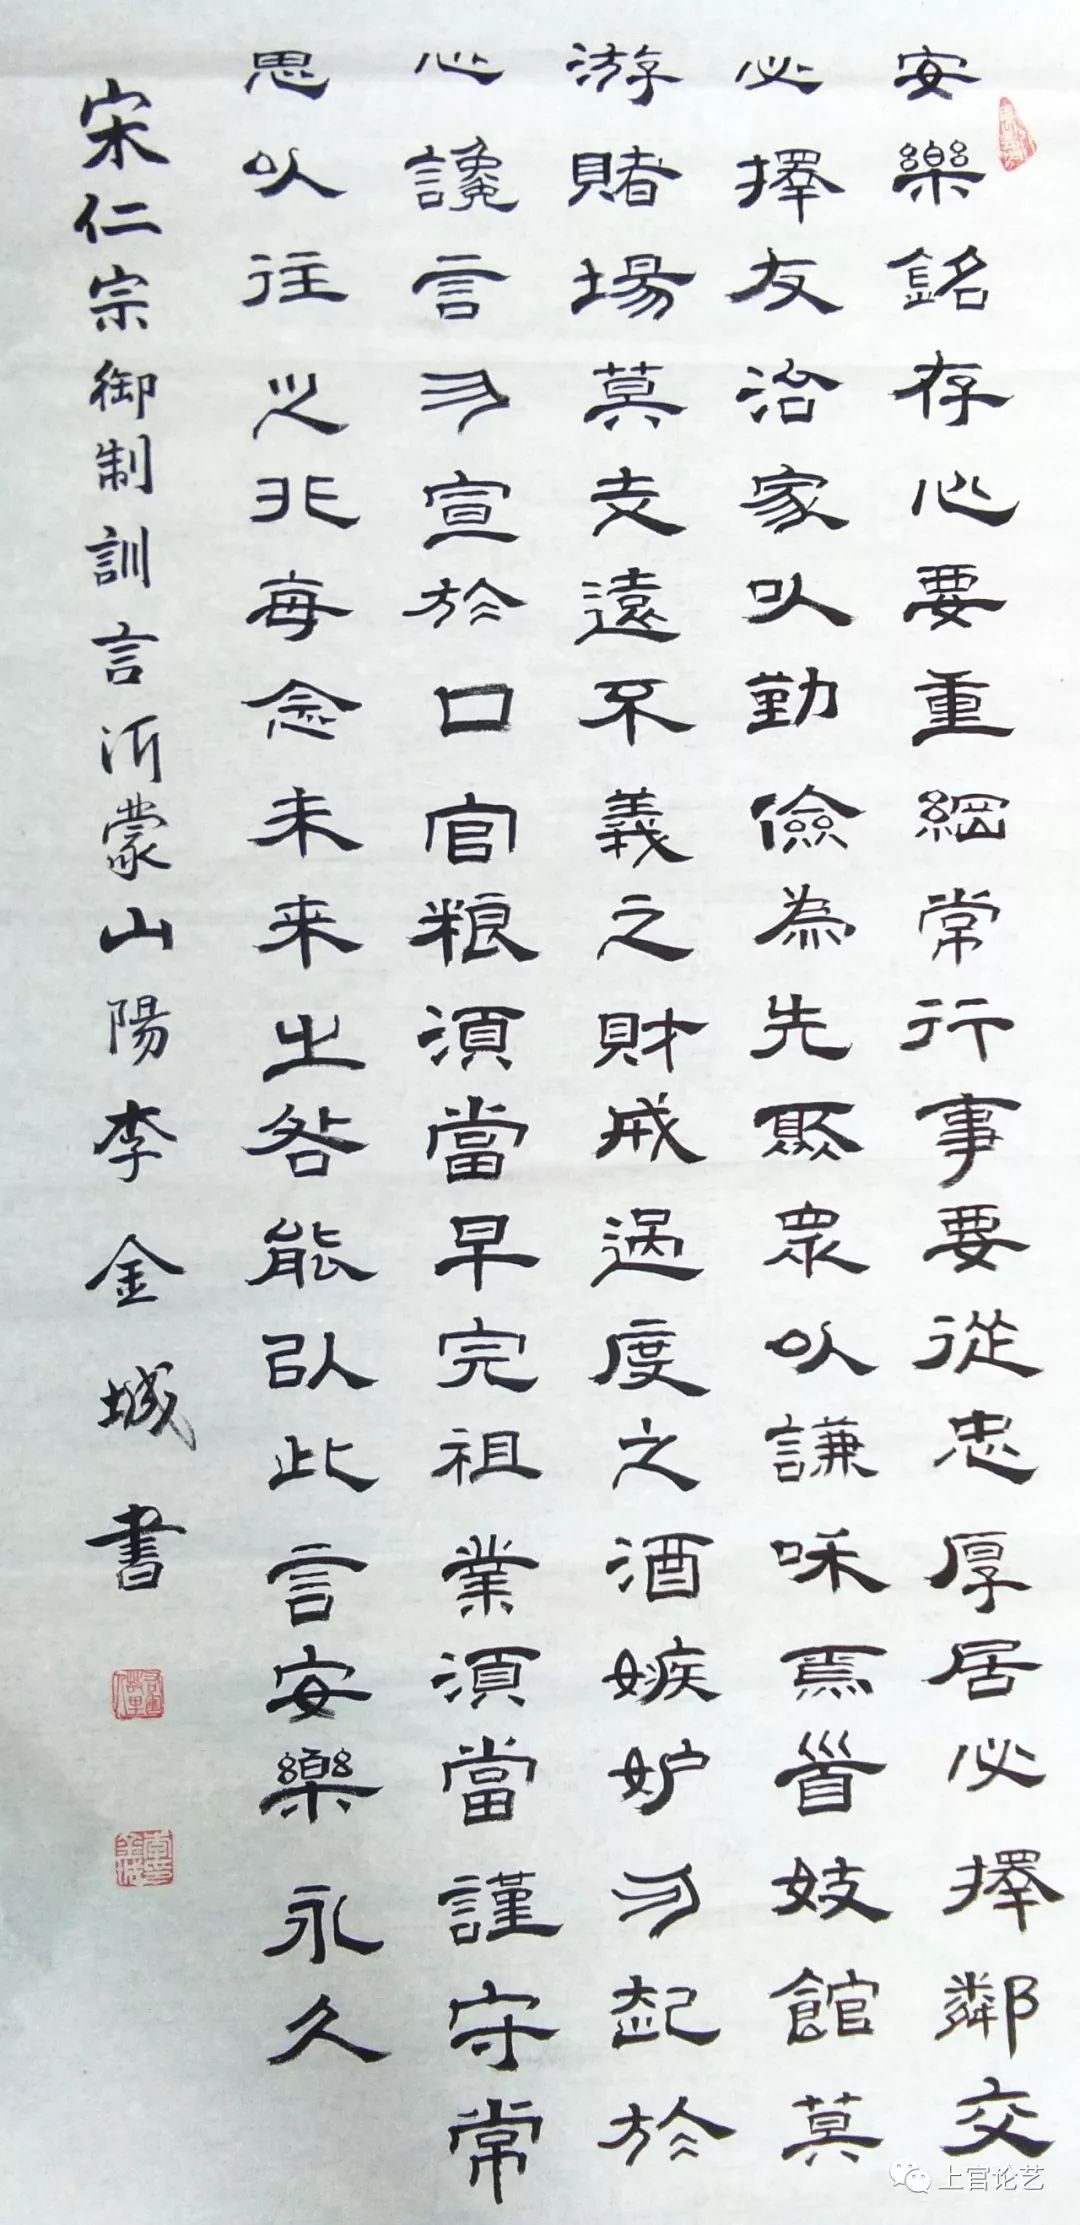 安樂銘存心要重綱常行事要從忠厚居必擇鄰交
必擇友治家以勤儉為先聚眾以謙和焉首妓館莫
游賭場莫支遠不義之財戒過度之酒嫉妒勿起於
心讒言勿宣於口官粮須當早完祖業須當謹守常
思以往之非每念未来之咎能以此言安樂永久
宋仁宗御制訓言沂蒙山陽李金城書
上官论艺